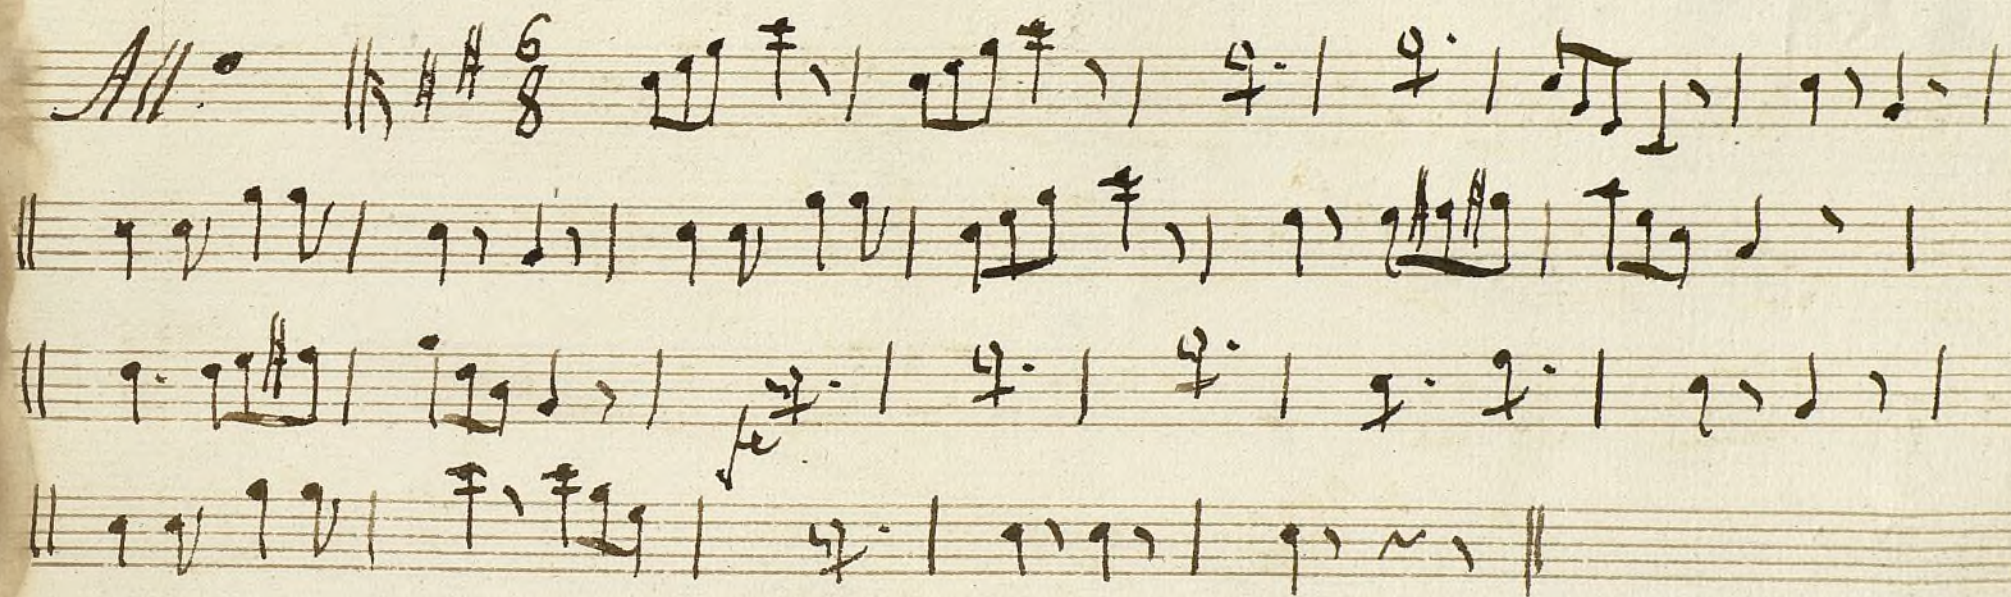 All:o 6/8
fe